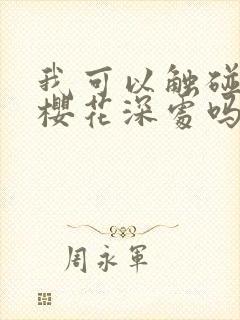 我可以触碰
樱花深处吗
周永军